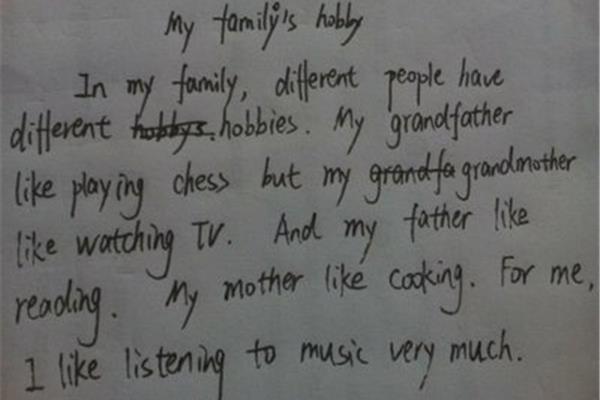 My family's hobby
In my family, different people have
different hobbys. hobbies. My grandfather
like playing chess but my grandfa grandmother
like watching TV. And my father like
reading. My mother like cooking. For me,
I like listening to music very much.